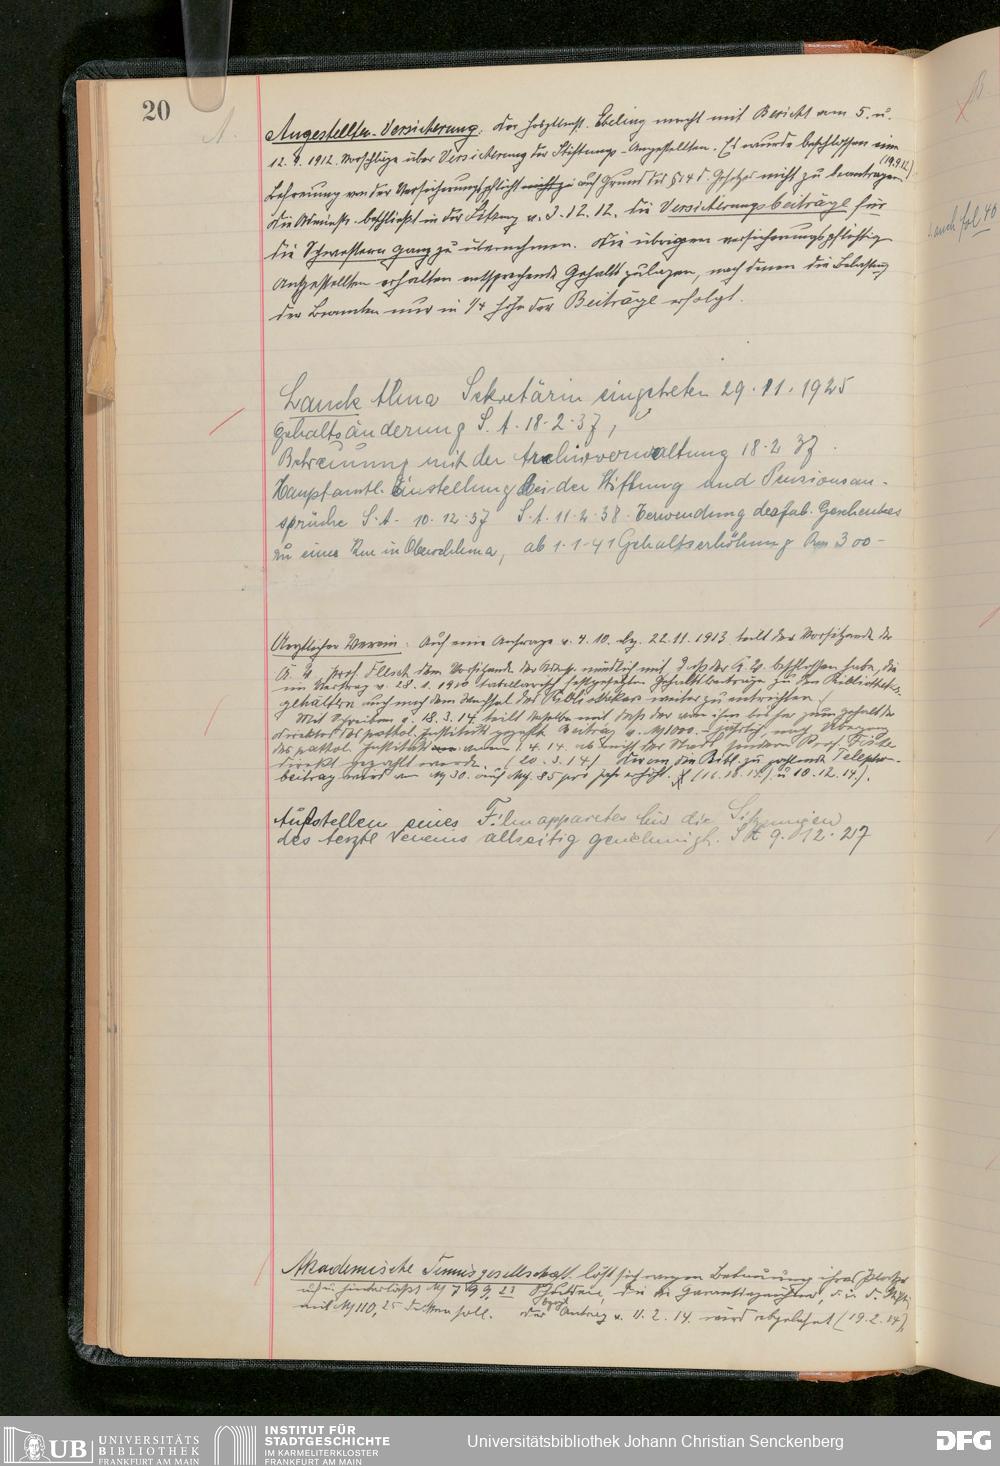 20
A.
B.
Angestellten-Versicherung. Der Hospitalmstr. Ebeling macht mit Bericht vom 5. u.
12. 9. 1912. Vorschläge über Versicherung der Stiftungs-Angestellten. Es wurde beschlossen eine
(19.9.12)
Befreiung von der Versicherungspflicht auf Grund des § 14 d. Gesetzes nicht zu beantragen.
Die Administr. beschließt in der Sitzung v. 3. 12. 12. die Versicherungsbeiträge für
die Schwestern ganz zu übernehmen. Die übrigen versicherungspflichtig
Angestellten erhalten entsprechende Gehaltszulagen, nach denen die Belastung
der Beamten nur in 1/4 Höhe der Beiträge erfolgt.
s. auch fol 40
Lanck Alma Sekretärin eingetreten 29. 11. 1925
Gehaltsänderung S. A. 18. 2. 37,
Betreuung mit der Archivverwaltung 18. 2. 37.
Hauptamtl. Einstellung bei der Stiftung und Pensionsan-
sprüche S. A. 10. 12. 37 S. A. 11. 2. 38. Verwendung des Geschenkes
zu einer in, ab 1. 1. 41 Gehaltserhöhung Rm 300-
Aerztlicher Verein. Auf eine Anfrage v. 9. 10. 22. 11. 1913 teilt der Vorsitzende des
Ä. V. Prof. Flesch dem Vorsitzende der Adm. mündlich mit, daß der Ä. V. beschlossen habe, die
im Vertrag v. 28. 1. 1910 festgesetzten Gehaltsbeiträge zu den Bibliotheks-
gehältern auch nach dem Wechsel des Bibliothekars weiter zu entrichten.
Mit Schreiben v. 18. 3. 14. teilt derselbe mit, daß der von ihm bisher zum Gehalt des
Direktors des pathol. Instituts gezahlte Beitrag v. M 1000.- jährlich, nach Übergang
des pathol. Instituts vom 1. 4. 14. ab nicht der Stadt, sondern Prof. Fischer
direkt gezahlt werde. (20. 3. 14) Der an die Bibl. zu zahlende Telephon-
beitrag wird von M 30. auf M. 85 pro Jahr erhöht. u 10. 12. 14.).
Aufstellen eines Filmapparates bei die Sitzungen
des Aerztl Vereins allseitig genehmigt. S A 9. 12. 27
Akademische Tennisgesellschaft löst sich wegen Bebauung ihres Platzes
auf u. hinterläßt M Schulden, die die Garantiezeichner, d. i. d. Stiftg
mit M 110,25 decken soll. Der Antrag v. 11. 2. 14. wird abgelehnt (19. 2. 14).
UB UNIVERSITÄTS
BIBLIOTHEK
FRANKFURT AM MAIN
INSTITUT FÜR
STADTGESCHICHTE
IM KARMELITERKLOSTER
FRANKFURT AM MAIN
Universitätsbibliothek Johann Christian Senckenberg
DFG